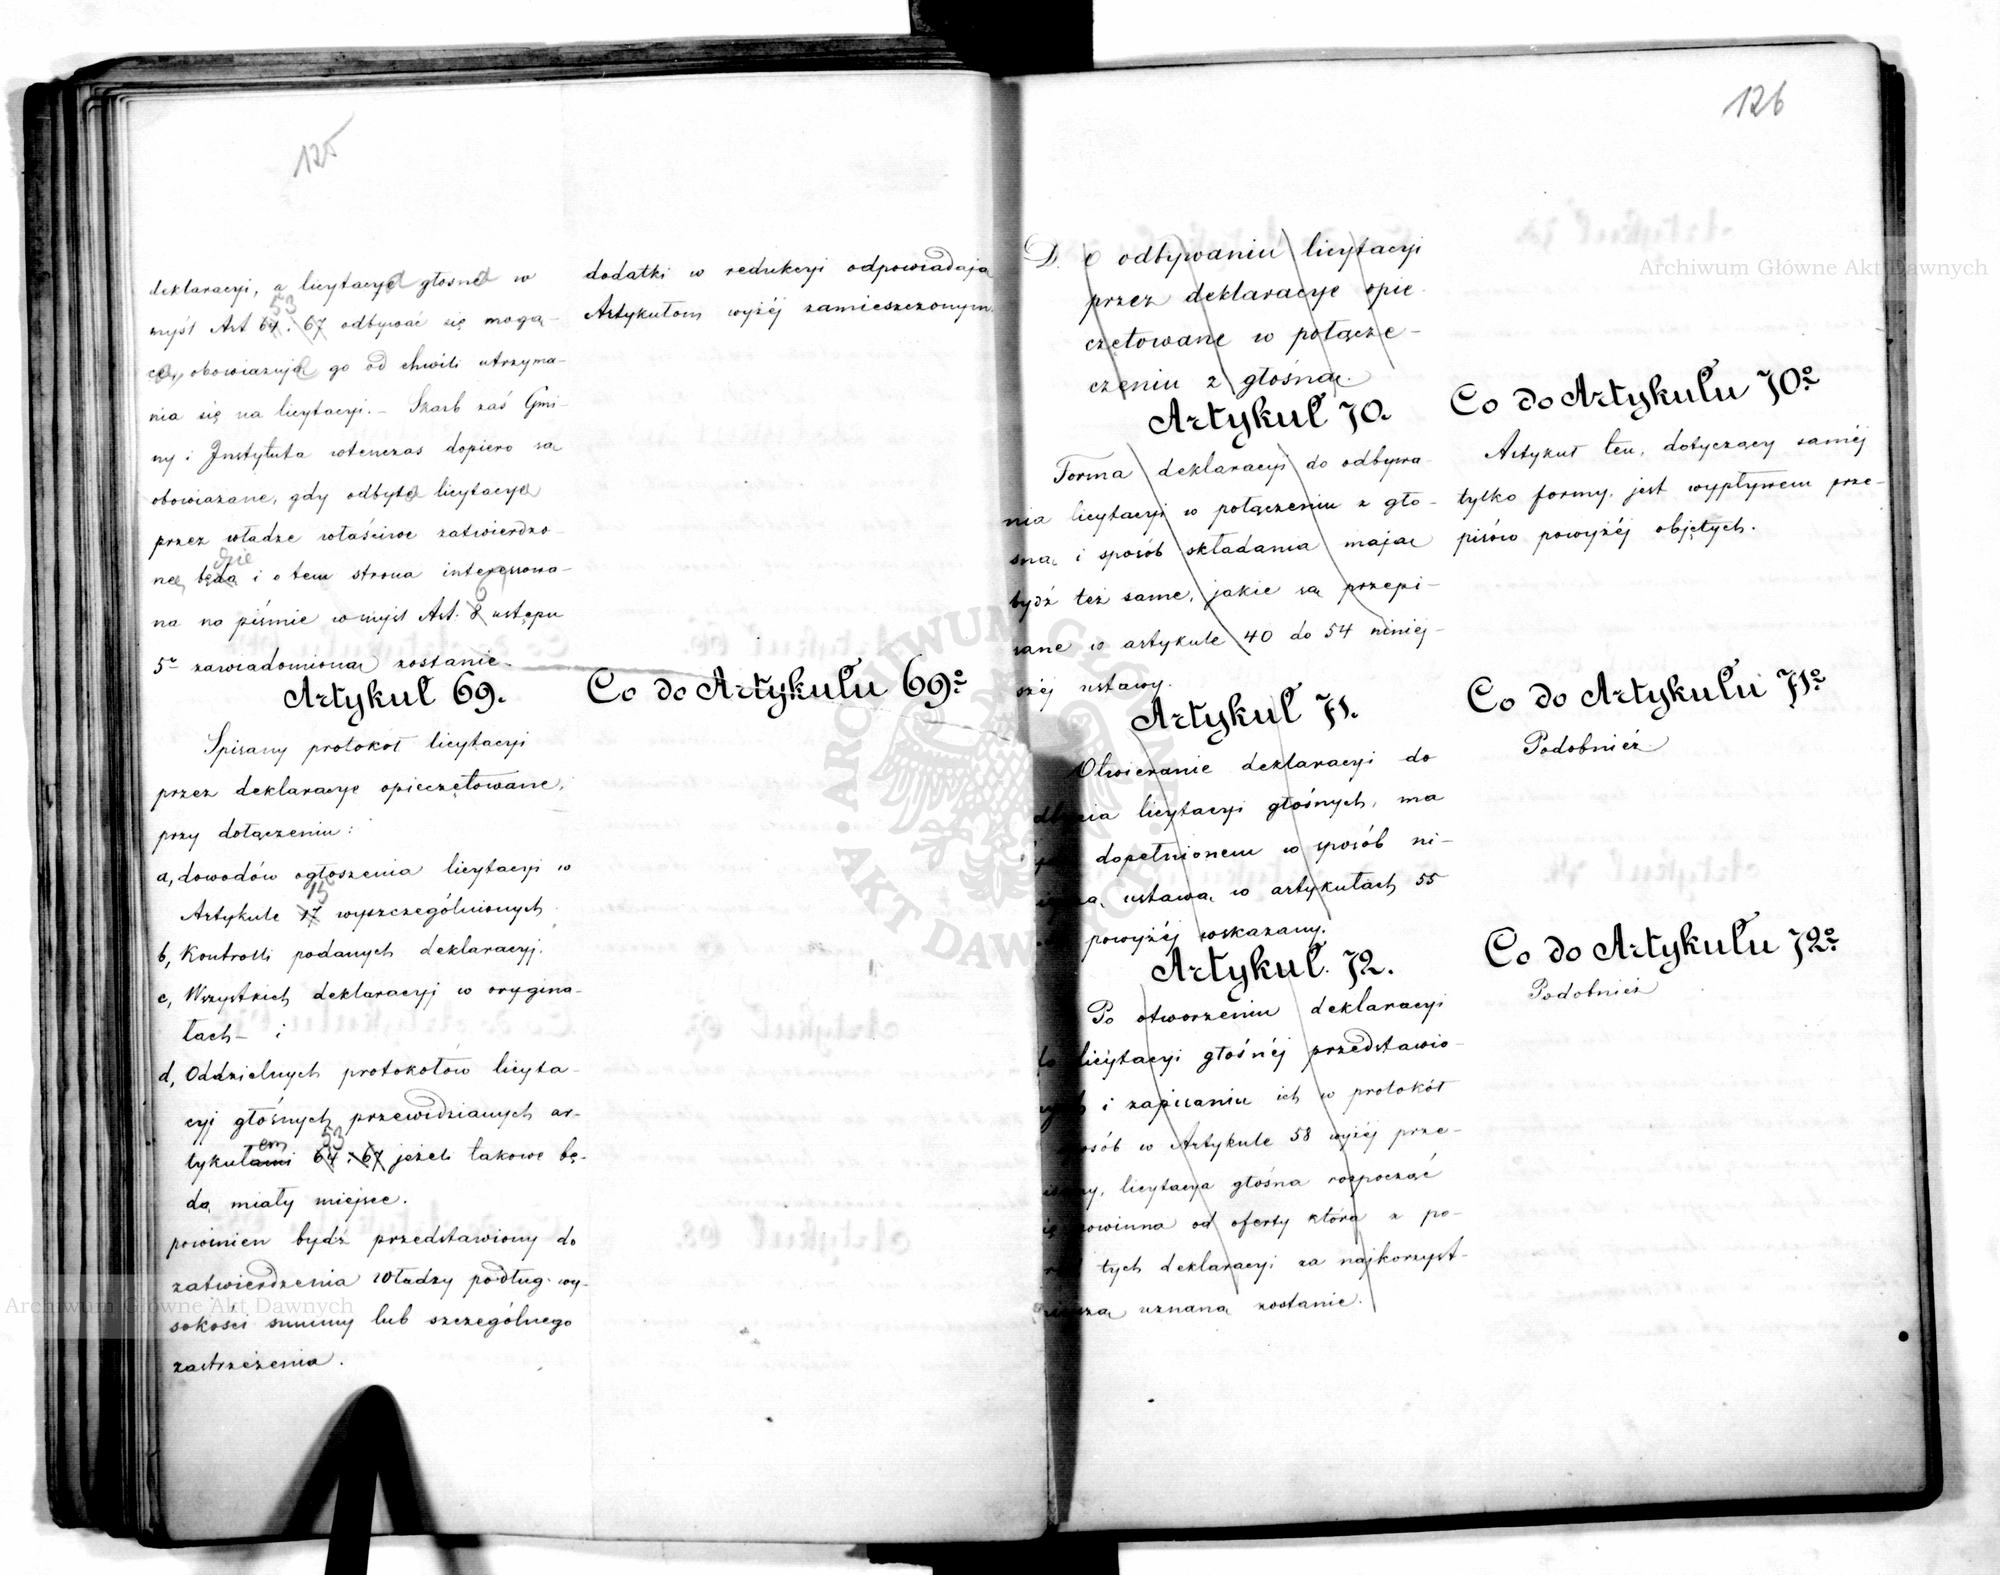 125
deklaracyi, a licytacye głosne w
53
myśl Art 64. 67 odbywać się mogą-
ce, obowiązują go od chwili utrzyma-
nia się na licytacyi. – Skarb zaś Gmi-
ny i Instytuta wtenczas dopiero są
obowiązane, gdy odbyte licytacye
przez władze właściwe zatwierdzo-
dzie
ne będą i o tem strona interessowa-
na na piśmie w myśl Art. 8 ustępu
5º zawiadomioną zostanie.
Artykuł 69.
Spisany protokół licytacyi
przez deklaracye opieczętowane,
przy dołączeniu:
a, dowodów ogłoszenia licytacyi w
15
Artykule 17 wyszczególnionych
b, Kontrolli podanych deklaracyj.
c, Wszystkich deklaracyj w orygina-
łach – i
d, Oddzielnych protokołów licyta-
cyi głośnych przewidzianych ar-
em 53
tykułami 64. 67 jeżeli takowe bę-
dą miały miejsce.
powinien bydź przedstawiony do
zatwierdzenia Władzy podług wy-
sokości summy lub szczególnego
zastrzeżenia.
dodatki w redukcyi odpowiadają
Artykułom wyżéj zamieszczonym.
Co do Artykułu 69º
126
D. O odbywaniu licytacyi
przez deklaracye opie
czętowane w połącze-
czeniu z głośną.
Artykuł 70.
Forma deklaracyi do odbywa-
nia licytacyi w połączeniu z gło-
sną i sposób składania mają
bydź też same, jakie są przepi-
sane w artykule 40 do 54 niniej-
széj ustawy.
Artykuł 71.
Otwieranie deklaracyi do
licytacyi głośnych, ma
dopełnionem w sposób ni-
ustawą w artykułach 55
powyżéj wskazany.
Artykuł. 72.
Po otworzeniu deklaracyi
licytacyi głośnéj przedstawio-
i zapisaniu ich w protokół
w Artykule 58 wyżéj prze-
licytacya głośna rozpocząć
powinna od oferty którą z po-
tych deklaracyi za najkorzyst-
uznaną zostanie.
Co do Artykułu 70º
Artykuł ten, dotyczący saméj
tylko formy, jest wypływem prze-
pisów powyżéj objętych.
Co do Artykułu 71º
Podobnież
Co do Artykułu 72º
Podobnież
Archiwum Główne Akt Dawnych
Archiwum Główne Akt Dawnych
ARCHIWUM GŁÓWNE AKT DAWNYCH